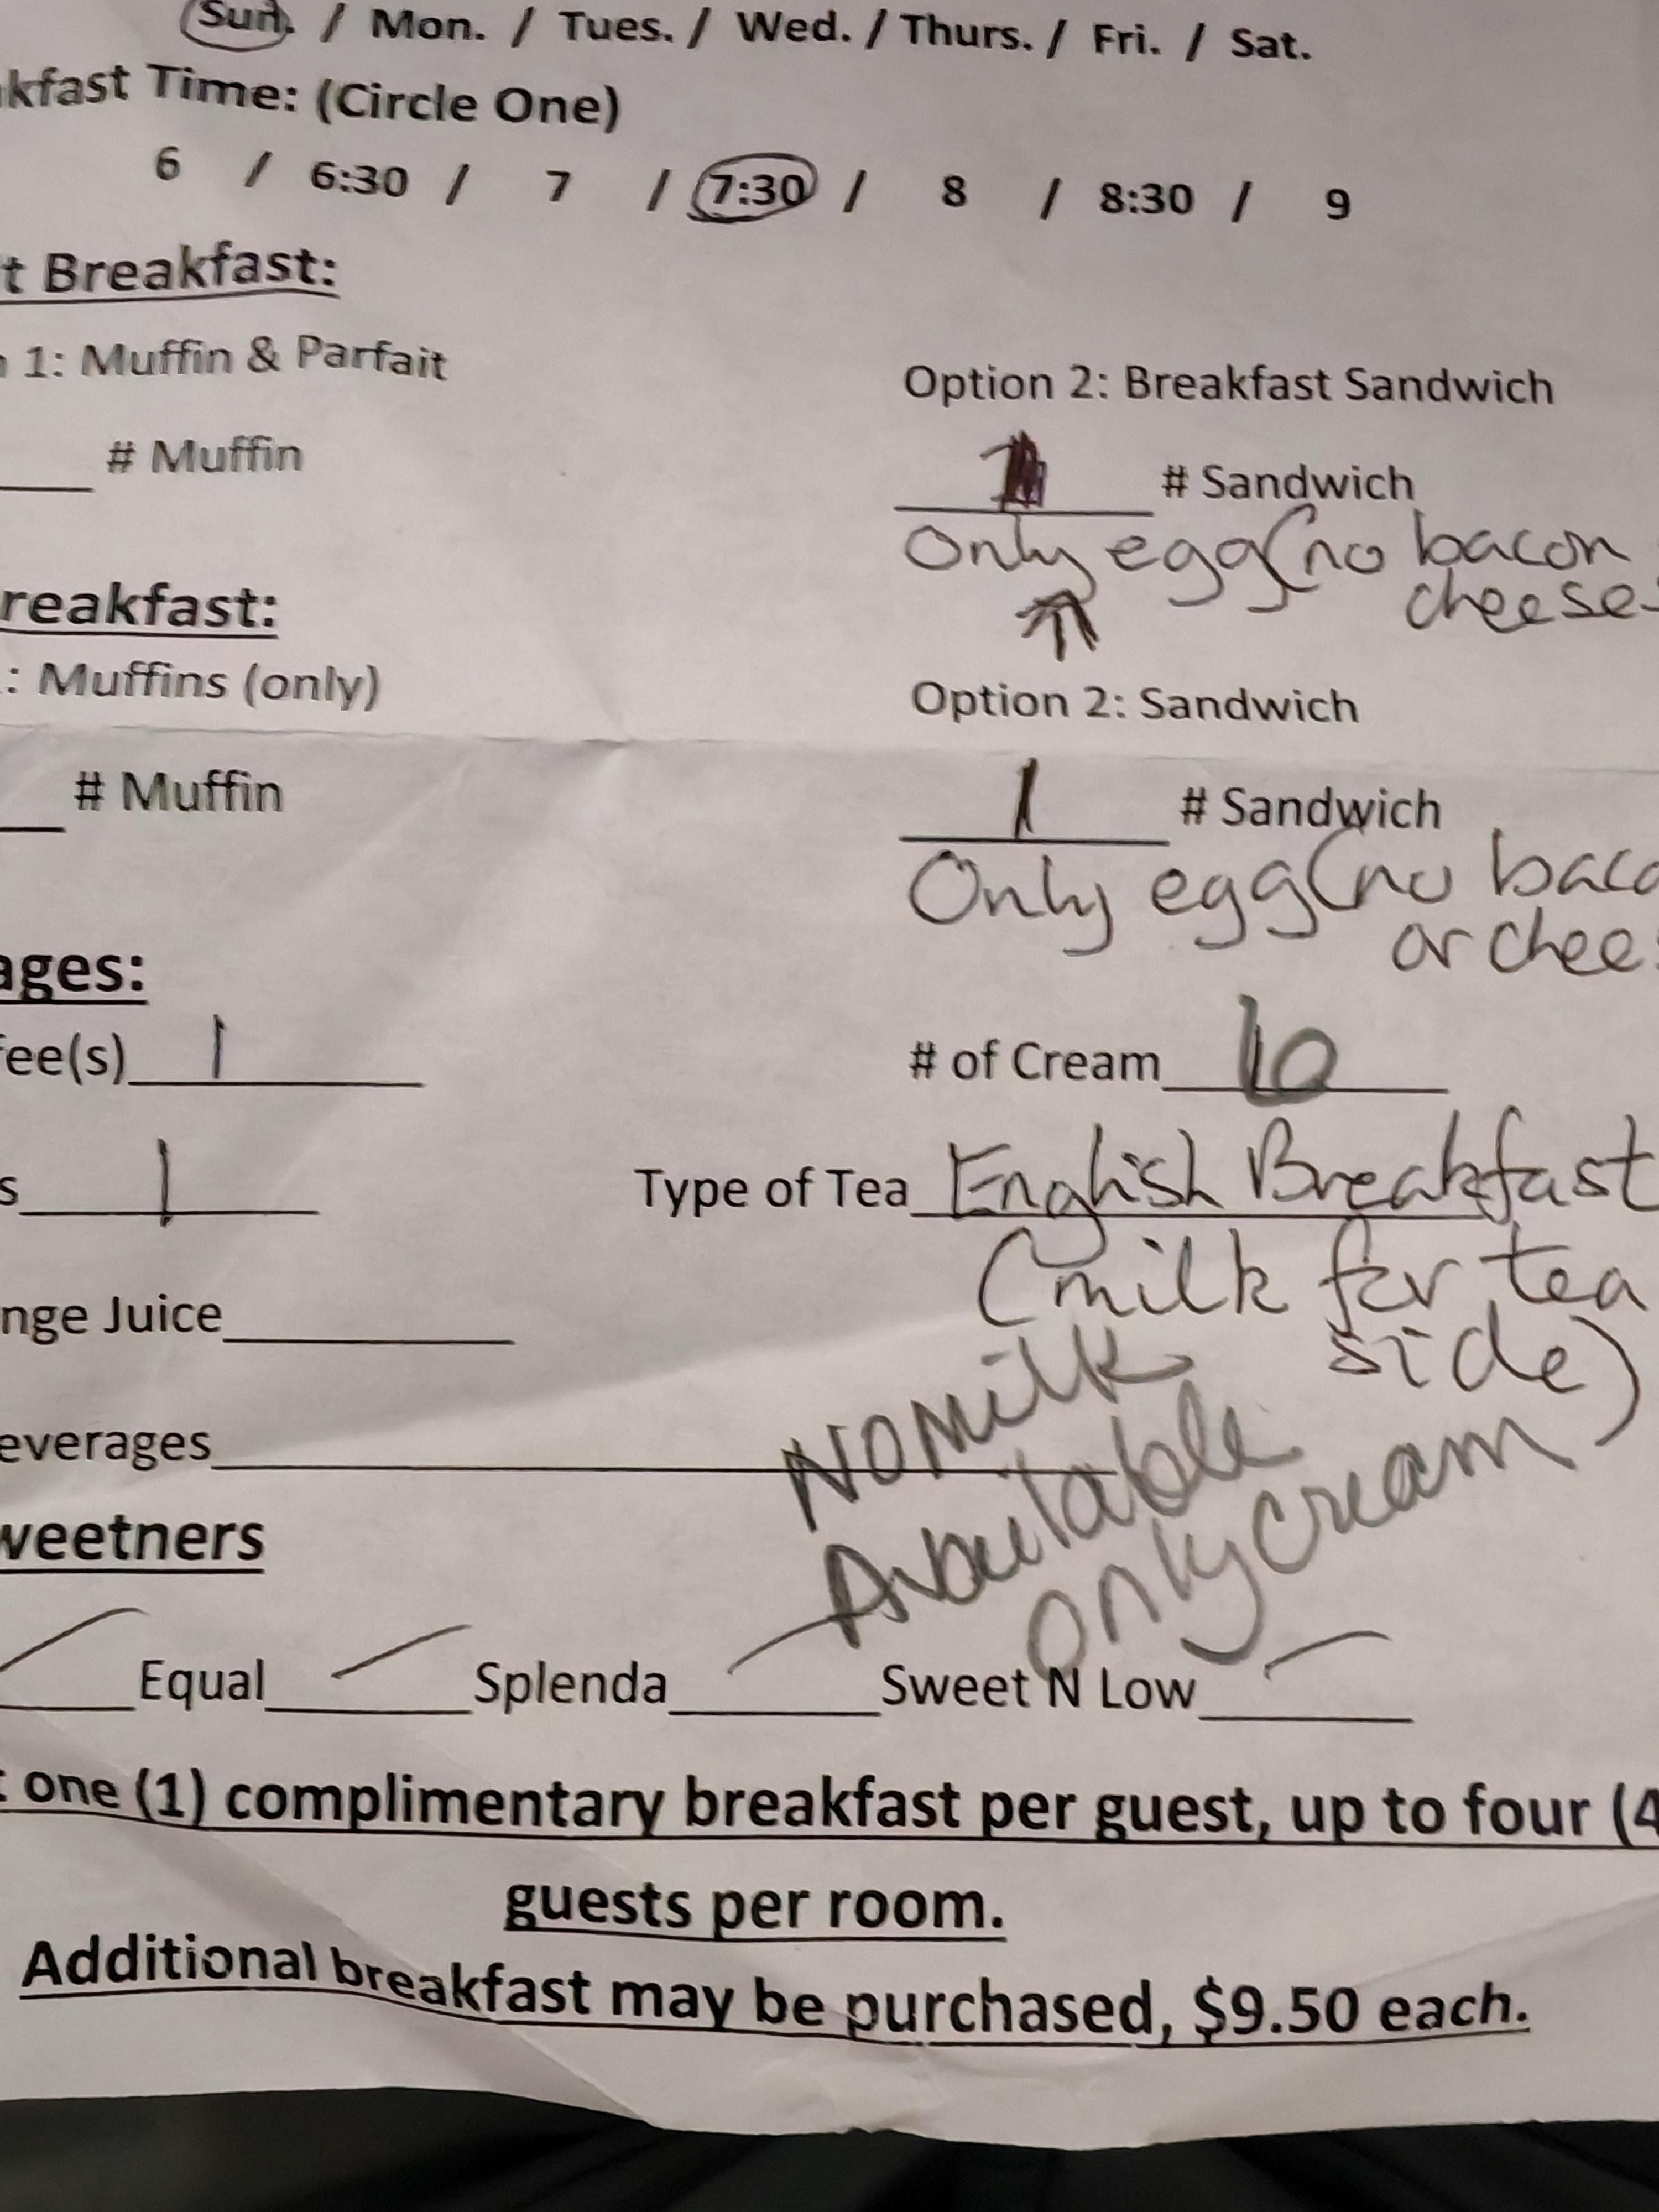 Sun. / Mon. / Tues. / Wed. / Thurs. / Fri. / Sat.
kfast Time: (Circle One)
6 / 6:30 / 7 / 7:30 / 8 / 8:30 / 9
t Breakfast:
1: Muffin & Parfait Option 2: Breakfast Sandwich
# Muffin # Sandwich
Only egg (no bacon
cheese
reakfast:
: Muffins (only) Option 2: Sandwich
# Muffin 1 # Sandwich
Only egg (no baco
or chee
ages:
ee(s) 1 # of Cream
s 1 Type of Tea English Breakfast
(milk for tea
side)
nge Juice
No Milk
Available
only cream
everages
weetners
Equal Splenda Sweet N Low
one (1) complimentary breakfast per guest, up to four (4
guests per room.
Additional breakfast may be purchased, $9.50 each.